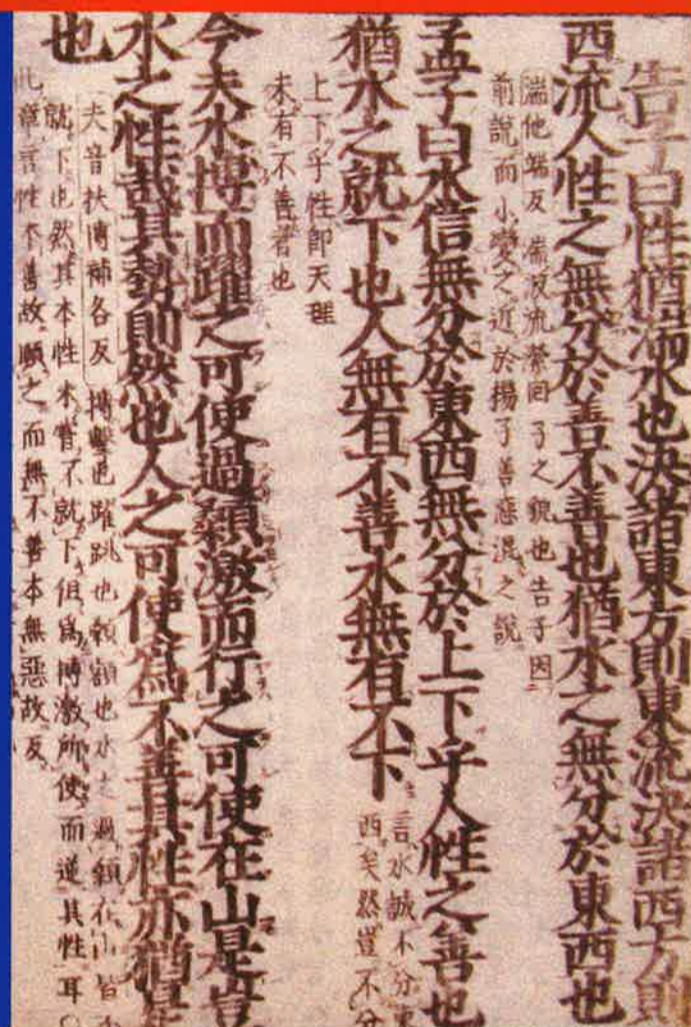 告子曰性猶湍水也決諸東方則東流決諸西方則
西流人性之無分於善不善也猶水之無分於東西也
湍他端反 湍波流縈回了之貌也告子因
前說而小變之近於揚子善惡混之說
孟子曰水信無分於東西無分於上下乎人性之善也
猶水之就下也人無有不善水無有不下
言水誠不分東
西矣然豈不分
上下乎性即天理
未有不善者也
今夫水搏而躍之可使過顙激而行之可使在山是豈
水之性哉其勢則然也人之可使爲不善其性亦猶是
也
夫音扶搏補各反 搏擊也躍跳也顙額也水之過顙在山皆不
就下也然其本性未嘗不就下但爲搏激所使而逆其性耳○
此章言性本善故順之而無不善本無惡故反